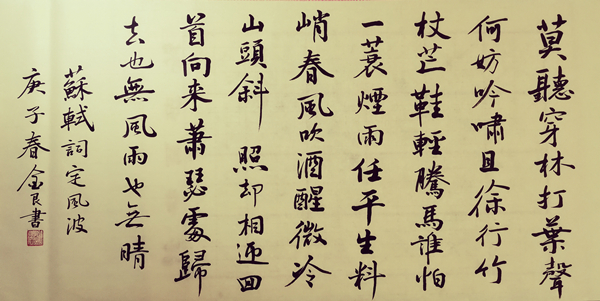 莫聽穿林打葉聲
何妨吟嘯且徐行竹
杖芒鞋輕騰馬誰怕
一蓑煙雨任平生料
峭春風吹酒醒微冷
山頭斜照却相迎回
首向来蕭瑟處歸
去也無風雨也无晴
蘇軾詞定風波
庚子春金良書